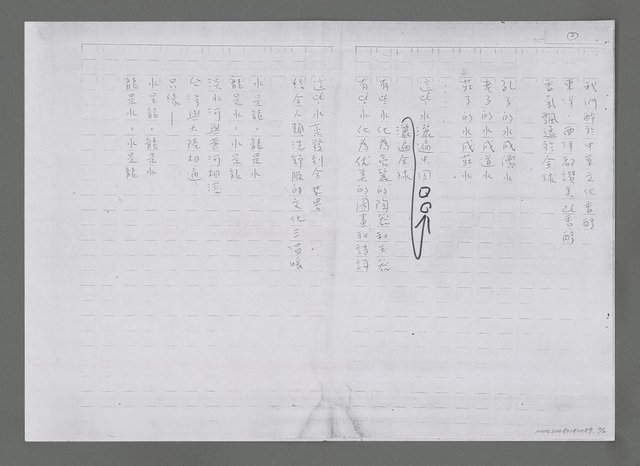 2
我們醉於中華文化香醇
東洋、西洋都讚美此香醇
香氣飄逸於全球
孔子的水成儒水
老子的水成道水
莊子的水成莊水
這些水灑遍中国
灑遍全球
有些水化為亮麗的陶瓷和玉瓷
有些水化為优美的圖畫和詩詞
這些水蒸發到全世界
給全人類洗舒服的文化三溫暖
水是龍，龍是水
龍是水，水是龍
淡水河與黄河相滙
台灣與大陸相通
只緣——
水是龍，龍是水
龍是水，水是龍